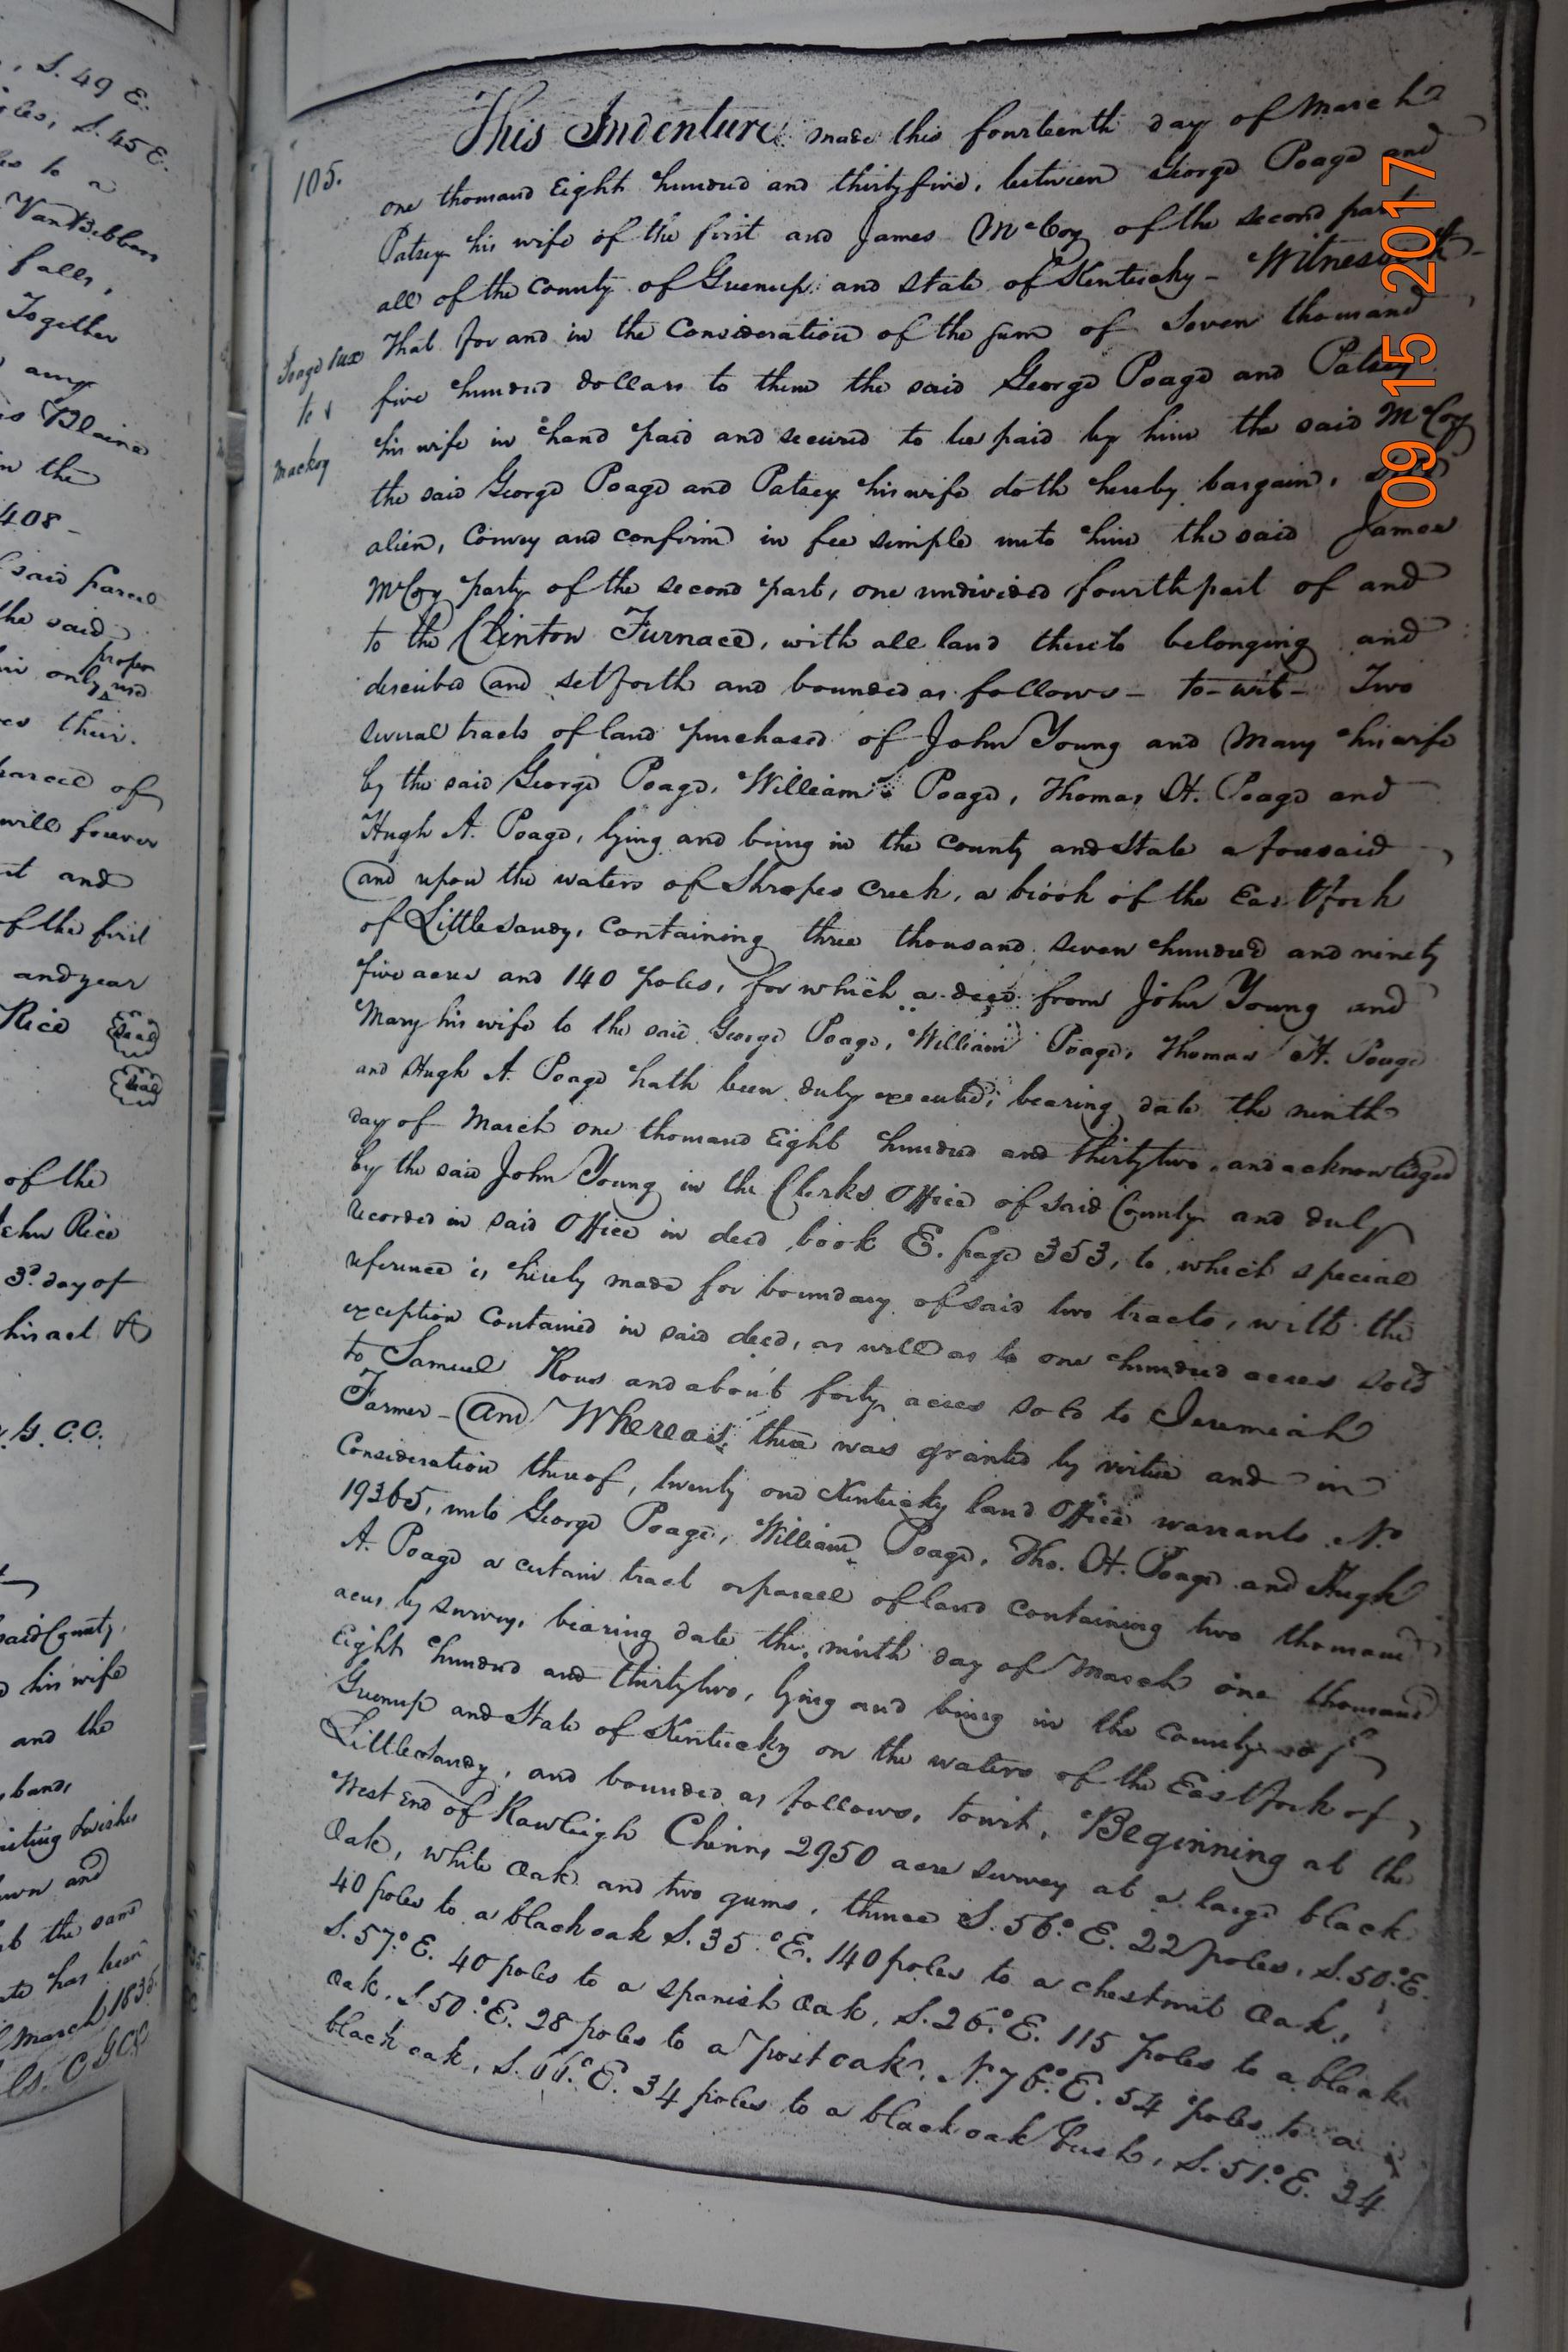 , S. 49 E.
oles, S. 45 E.
to a
VanBibbers
falls,
Together
any
Blaine
in the
408 -
said parcel
the said
proper
only use
their.
parcel of
will forever
and
of the first
and year
Rice Seal
Seal
of the
John Rice
3d. day of
his act
G. C. C.
said County,
his wife
and the
band,
and
the same
has been
March 1835.
105.
Poage & ux
to
Mackoy
This Indenture made this fourteenth day of March
one thousand Eight hundred and thirtyfive, between George Poage and
Patsey his wife of the first and James McCoy of the second part
all of the County of Greenup and State of Kentucky - Witnesseth -
That for and in the Consideration of the sum of Seven thousand
five hundred dollars to them the said George Poage and Patsey
his wife in hand paid and secured to be paid by him the said McCoy
the said George Poage and Patsey his wife doth hereby bargain, sell
alien, Convey and confirm in fee simple unto him the said James
McCoy party of the second part, one undivided fourth part of and
to the Clinton Furnace, with all land thereto belonging and
described and set forth and bounded as follows - to-wit - Two
several tracts of land purchased of John Young and Mary his wife
by the said George Poage, William Poage, Thomas H. Poage and
Hugh A. Poage, lying and being in the County and State aforesaid
and upon the waters of Shropes Creek, a brook of the East fork
of Little Sandy, Containing three thousand seven hundred and ninety
five acres and 140 poles, for which a deed from John Young and
Mary his wife to the said George Poage, William Poage, Thomas H. Poage
and Hugh A. Poage hath been duly executed, bearing date the ninth
day of March one thousand Eight hundred and thirtytwo, and acknowledged
by the said John Young in the Clerks Office of said County and duly
recorded in said Office in deed book E. page 353, to which special
reference is hereby made for boundary of said two tracts, with the
exception Contained in said deed, as well as to one hundred acres sold
to Samuel Rous and about forty acres sold to Jeremiah
Farmer - And Whereas, there was granted by virtue and in
Consideration thereof, twenty one Kentucky land Office warrants No.
19365, unto George Poage, William Poage, Tho. H. Poage and Hugh
A. Poage a certain tract or parcel of land containing two thousand
acres by survey, bearing date the ninth day of March one thousand
Eight hundred and thirtytwo, lying and being in the County of
Greenup and State of Kentucky on the waters of the East fork of
Little Sandy, and bounded as follows, towit, Beginning at the
West End of Rawleigh Chinns 2950 acre survey at a large black
Oak, white Oak and two gums, thence S. 56.° E. 22 poles, S. 50.° E.
40 poles to a black oak S. 35.° E. 140 poles to a chestnut Oak,
S. 57.° E. 40 poles to a spanish Oak, S. 26.° E. 115 poles to a black
Oak, S. 50.° E. 28 poles to a post oak, N. 76.° E. 54 poles to a
black oak, S. 66.° E. 34 poles to a black oak bush, S. 51.° E. 34
09 15 2017